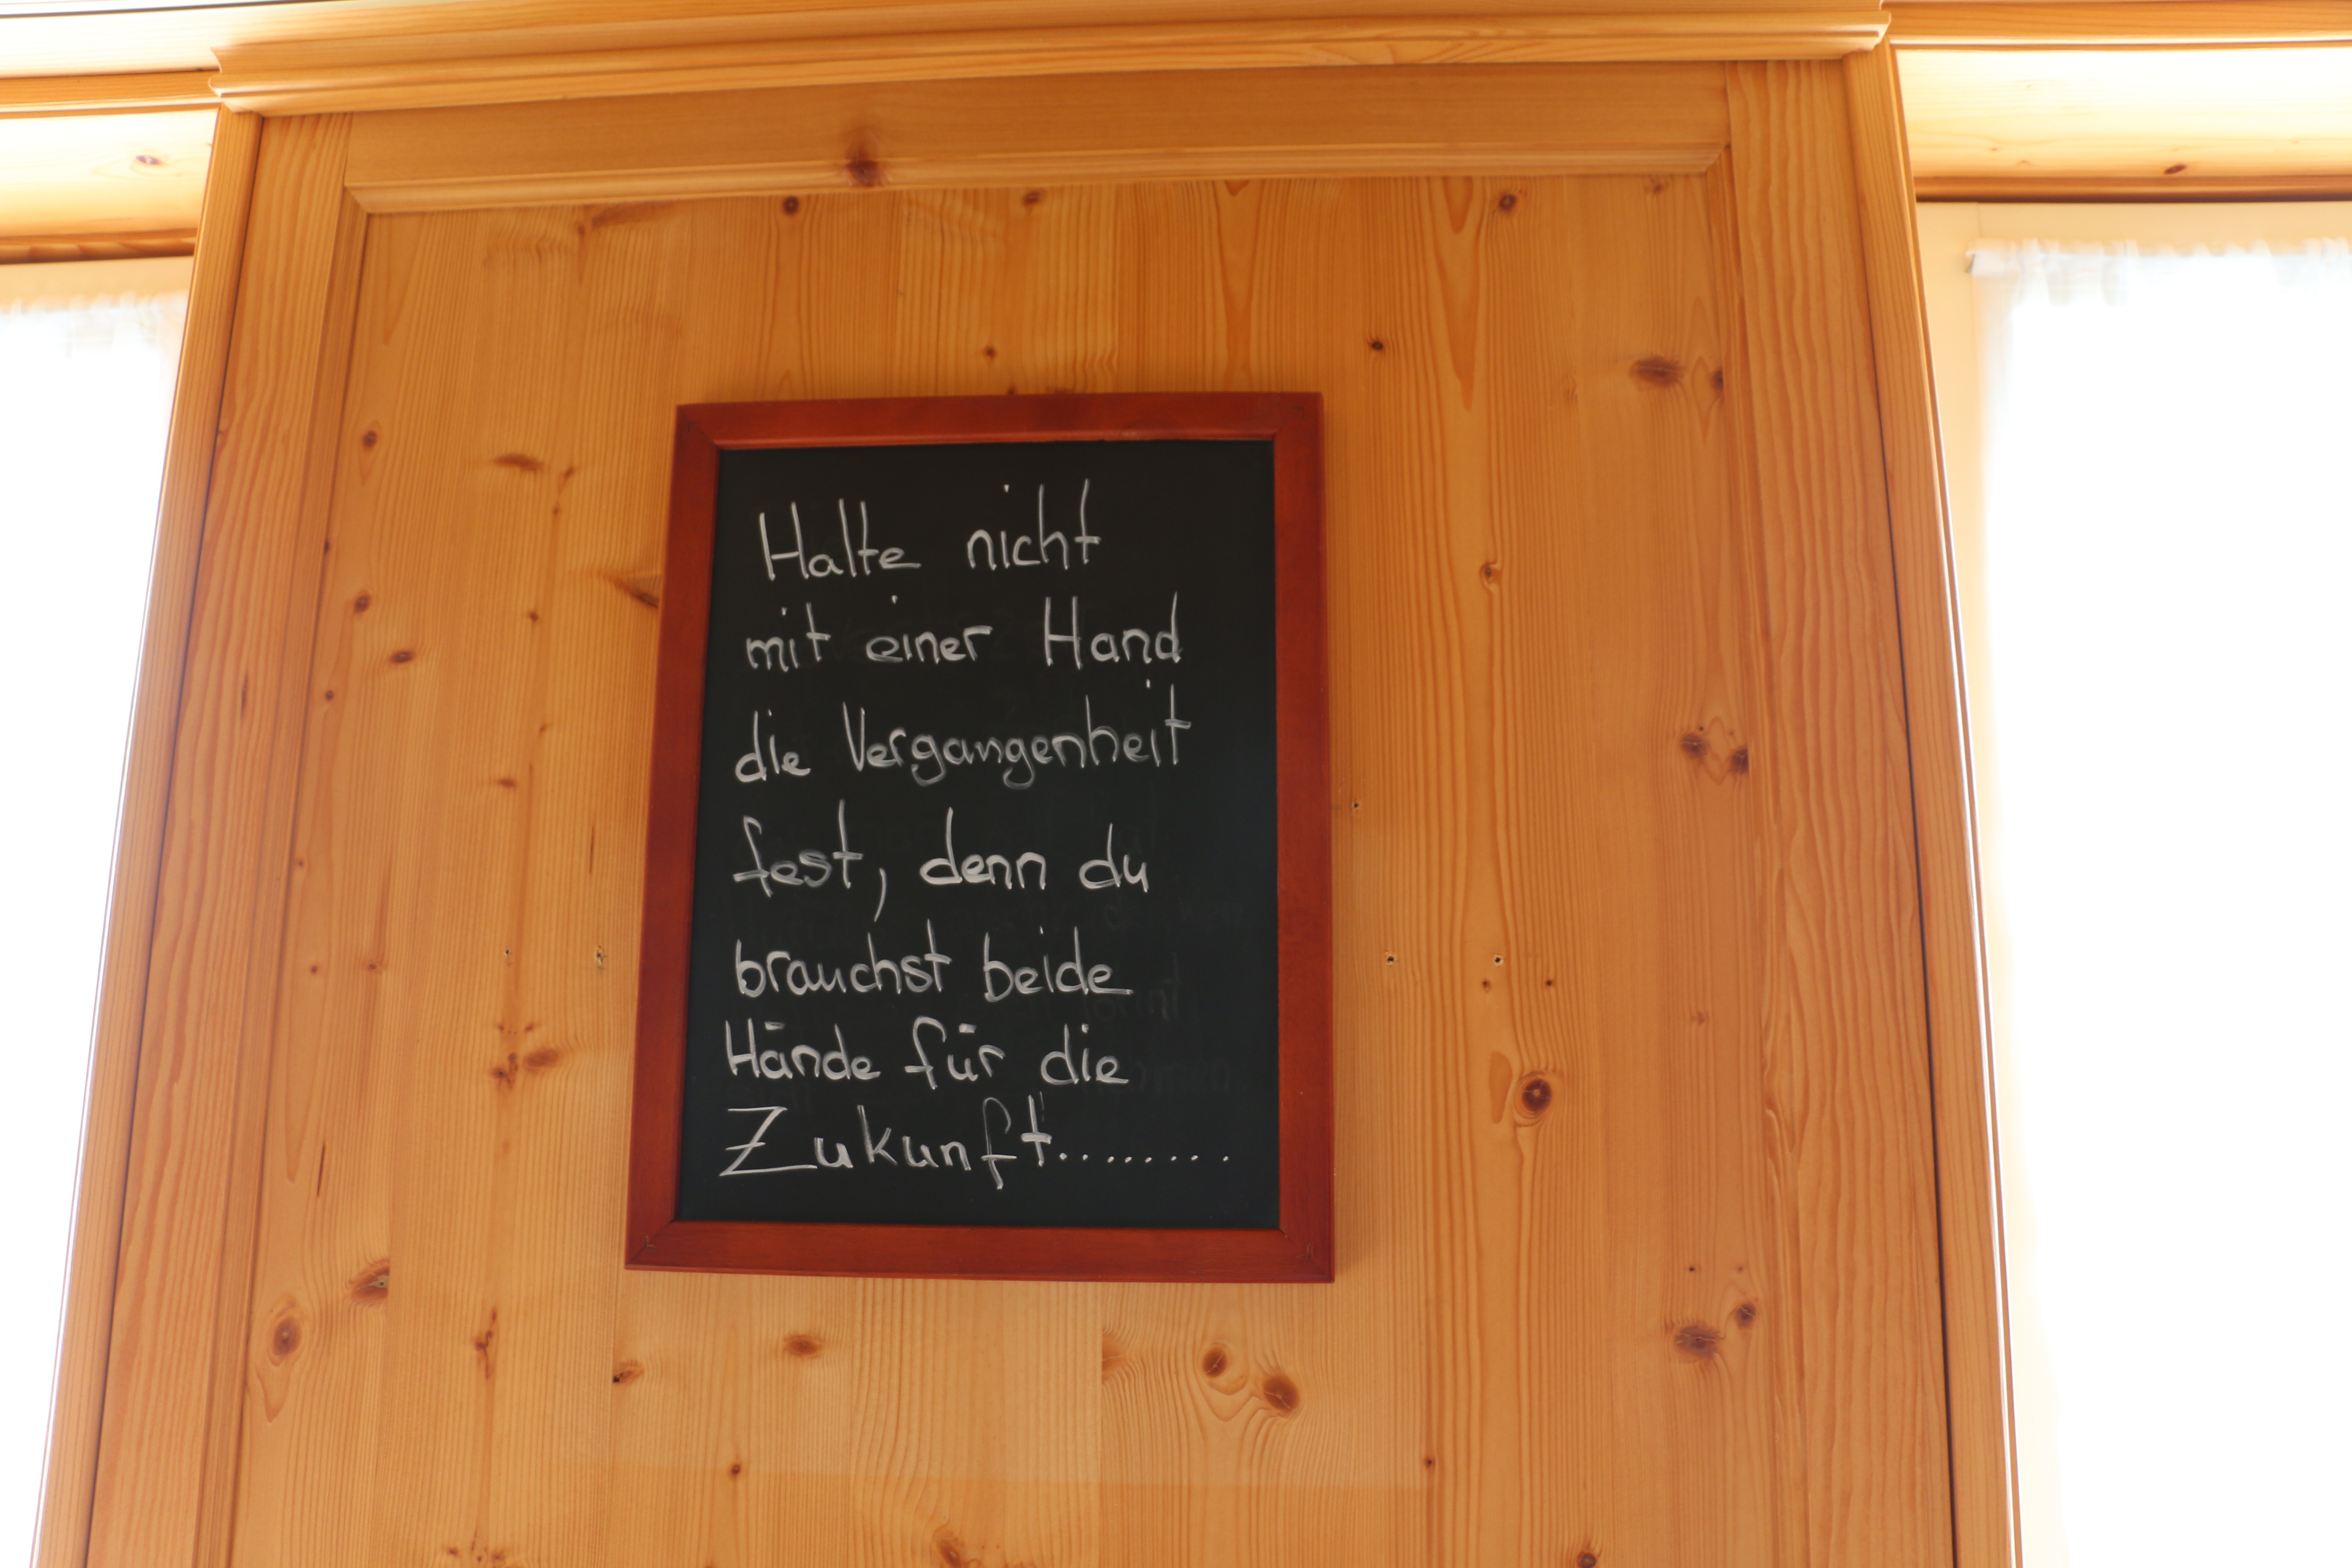 Halte nicht
mit einer Hand
die Vergangenheit
fest, denn du
brauchst beide
Hände für die
Zukunft........